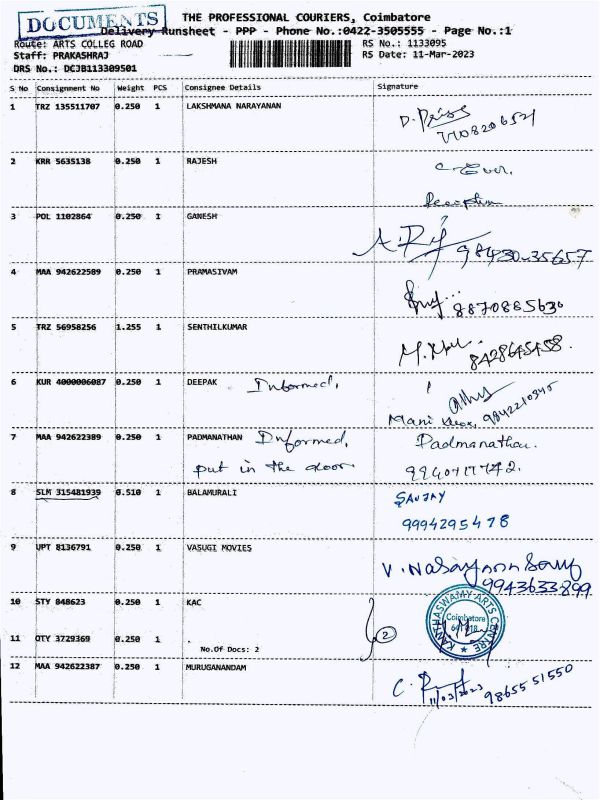 DOCUMENTS
THE PROFESSIONAL COURIERS, Coimbatore
Delivery Runsheet - PPP - Phone No.:0422-3505555 - Page No.:1
Route: ARTS COLLEG ROAD RS No.: 1133095
Staff: PRAKASHRAJ RS Date: 11-Mar-2023
DRS No.: DCJB113309501
S No Consignment No Weight PCS Consignee Details Signature
1 TRZ 135511707 0.250 1 LAKSHMANA NARAYANAN
2 KRR 5635138 0.250 1 RAJESH
3 POL 1102864 0.250 1 GANESH
98430-35657
4 MAA 942622589 0.250 1 PRAMASIVAM
8870885630
5 TRZ 56958256 1.255 1 SENTHILKUMAR
6 KUR 4000006087 0.250 1 DEEPAK Informed,
Mani 9842210545
7 MAA 942622389 0.250 1 PADMANATHAN Informed, Padmanathan.
put in the door
8 SLM 315481939 0.510 1 BALAMURALI SANJAY
9994295478
9 UPT 8136791 0.250 1 VASUGI MOVIES
9943633899
10 STY 848623 0.250 1 KAC
2
KANTHASWAMY ARTS CENTRE
Coimbatore
11 OTY 3729369 0.250 1 .
No.Of Docs: 2
12 MAA 942622387 0.250 1 MURUGANANDAM
11/03/2023 9865551550